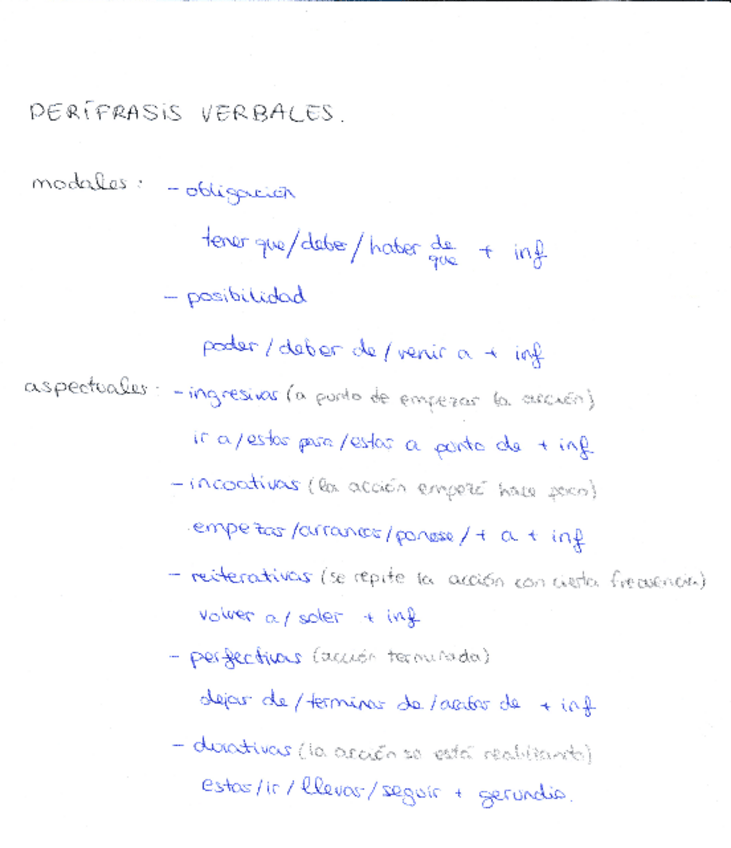 PERÍFRASIS VERBALES.
modales: - obligación
tener que/deber/haber de que + inf
- posibilidad
poder/deber de/venir a + inf
aspectuales: - ingresivas (a punto de empezar la acción)
ir a/estar para/estar a punto de + inf
- incoativas (la acción empezó hace poco)
empezar/arrancar/ponese/+ a + inf
- reiterativas (se repite la acción con cierta frecuencia)
volver a/soler + inf
- perfectivas (acción terminada)
dejar de/terminar de/acabar de + inf
- durativas (la acción se está realizando)
estar/ir/llevar/seguir + gerundio.